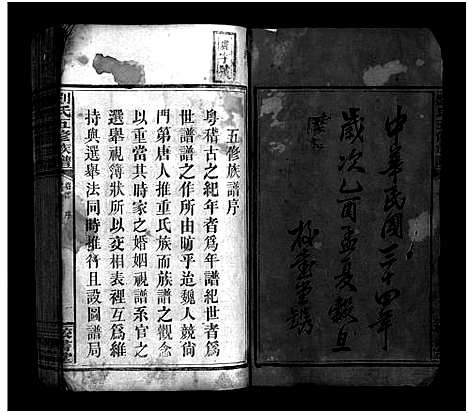 中華民國三十四年
歲次乙酉孟夏穀旦
五修族譜序
粵稽古之紀年者爲年譜紀世者爲
世譜譜之作所由昉乎迨魏人競尙
門第唐人推重氏族而族譜之觀念
以重當其時家之婚姻視譜系官之
選舉視簿狀所以交相表裡互爲維
持與選舉法同時推行且設圖譜局
劉氏五修族譜
序